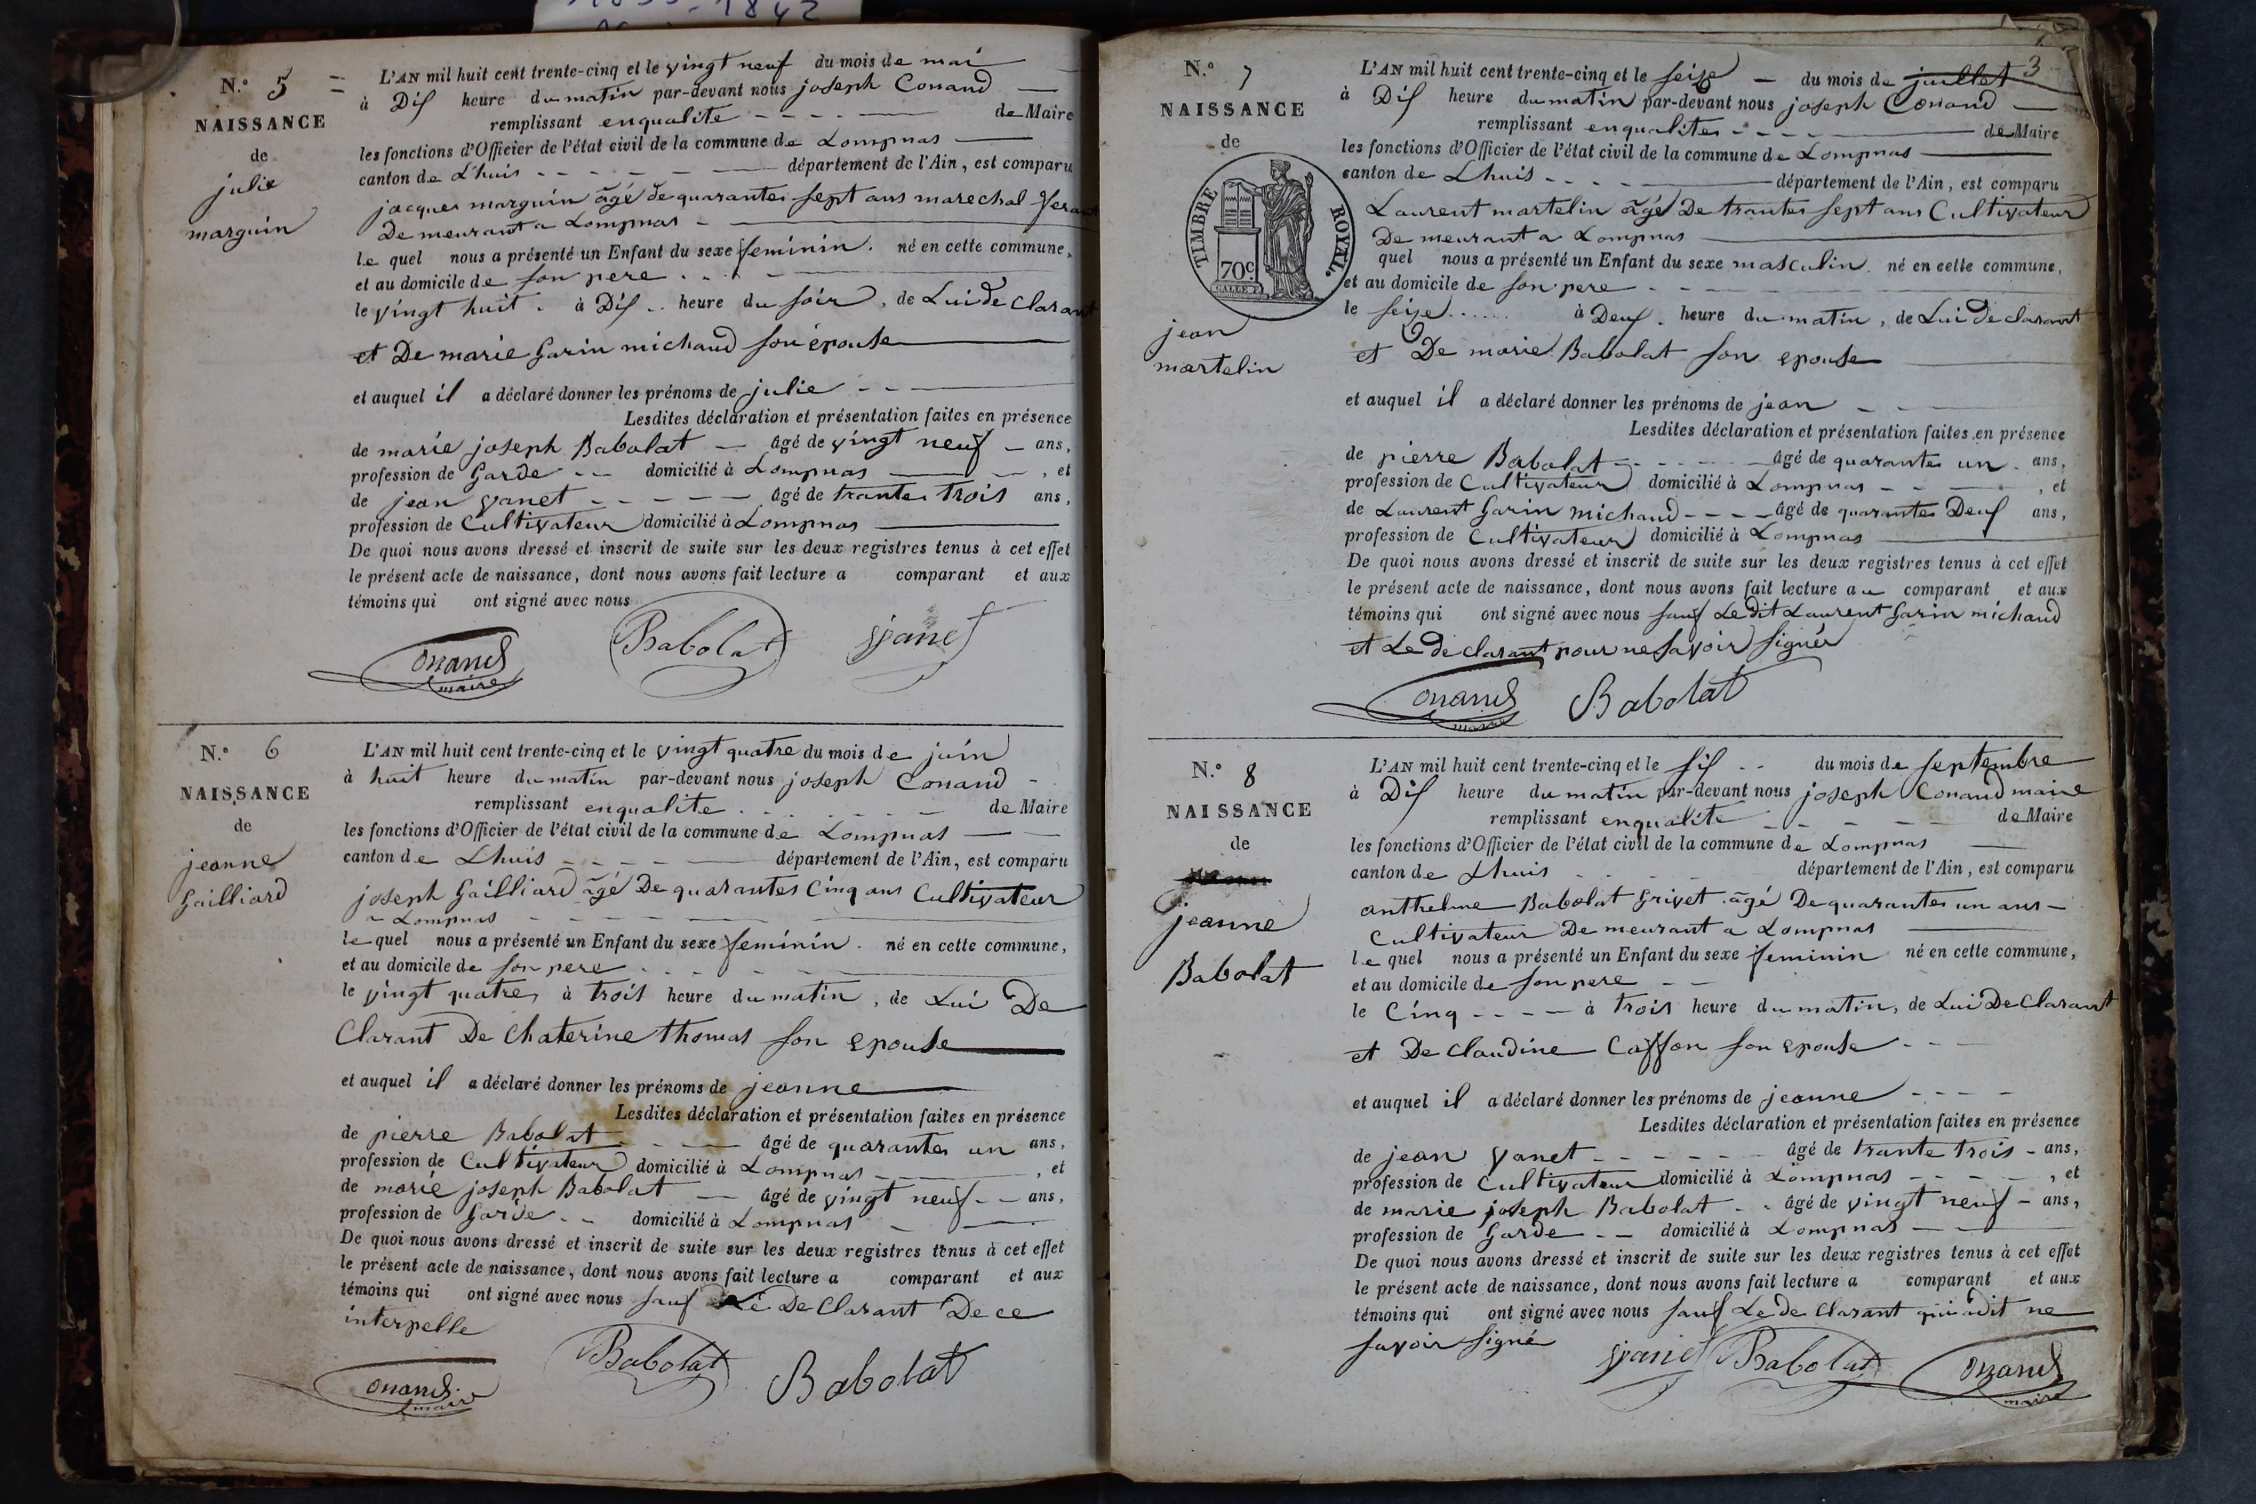 N.° 5
NAISSANCE
de
julie
marguin
L'AN mil huit cent trente-cinq et le vingt neuf du mois de mai
à Dis heure du matin par-devant nous joseph Conand
remplissant enqualite de Maire
les fonctions d'Officier de l'état civil de la commune de Lompnas
canton de Lhuis département de l'Ain, est comparu
jacques marguin âgé de quarantes sept ans marechal
De meurant a Lompnas
le quel nous a présenté un Enfant du sexe feminin. né en cette commune,
et au domicile de son pere
le vingt huit. à Dis heure du soir, de Lui de clarant
et De marie Garin michaud son épouse
et auquel il a déclaré donner les prénoms de julie
Lesdites déclaration et présentation faites en présence
de marie joseph Babolat âgé de vingt neuf ans,
profession de Garde domicilié à Lompnas, et
de jean yanet âgé de trantes trois ans,
profession de Cultivateur domicilié à Lompnas
De quoi nous avons dressé et inscrit de suite sur les deux registres tenus à cet effet
le présent acte de naissance, dont nous avons fait lecture a comparant et aux
témoins qui ont signé avec nous
Conand maire Babolat yanet
N.° 6
NAISSANCE
de
jeanne
Gailliard
L'AN mil huit cent trente-cinq et le vingt quatre du mois de juin
à huit heure du matin par-devant nous joseph Conand
remplissant enqualite de Maire
les fonctions d'Officier de l'état civil de la commune de Lompnas
canton de Lhuis département de l'Ain, est comparu
joseph Gailliard âgé De quarantes Cinq ans Cultivateur
a Lompnas
le quel nous a présenté un Enfant du sexe feminin. né en cette commune,
et au domicile de son pere
le vingt quatre, à trois heure du matin, de Lui De
Clarant De Chaterine thomas son epouse
et auquel il a déclaré donner les prénoms de jeanne
Lesdites déclaration et présentation faites en présence
de pierre Babolat âgé de quarantes un ans,
profession de Cultivateur domicilié à Lompnas, et
de marie joseph Babolat âgé de vingt neuf ans,
profession de Garde domicilié à Lompnas
De quoi nous avons dressé et inscrit de suite sur les deux registres tenus à cet effet
le présent acte de naissance, dont nous avons fait lecture a comparant et aux
témoins qui ont signé avec nous sauf Le De Clarant De ce
interpelle
Conand maire Babolat Babolat
3
N.° 7
NAISSANCE
de
TIMBRE ROYAL.
70c.
jean
martelin
L'AN mil huit cent trente-cinq et le seize du mois de juillet
à Dis heure du matin par-devant nous joseph Conand
remplissant enqualites de Maire
les fonctions d'Officier de l'état civil de la commune de Lompnas
canton de Lhuis département de l'Ain, est comparu
Laurent martelin âgé De trantes sept ans Cultivateur
De meurant a Lompnas
quel nous a présenté un Enfant du sexe masculin. né en cette commune,
et au domicile de son pere
le seize à Deus. heure du matin, de Lui de clarant
et De marie Babolat son epouse
et auquel il a déclaré donner les prénoms de jean
Lesdites déclaration et présentation faites en présence
de pierre Babolat âgé de quarantes un ans,
profession de Cultivateur domicilié à Lompnas, et
de Laurent Garin michaud âgé de quarantes Deus ans,
profession de Cultivateur domicilié à Lompnas
De quoi nous avons dressé et inscrit de suite sur les deux registres tenus à cet effet
le présent acte de naissance, dont nous avons fait lecture au comparant et aux
témoins qui ont signé avec nous sauf Le dit Laurent Garin michaud
et Le de clarant pour ne savoir signér
Conand maire Babolat
N.° 8
NAISSANCE
de
jeanne
Babolat
L'AN mil huit cent trente-cinq et le sis du mois de septembre
à Dis heure du matin par-devant nous joseph Conand maire
remplissant enqualite de Maire
les fonctions d'Officier de l'état civil de la commune de Lompnas
canton de Lhuis département de l'Ain, est comparu
anthelme Babolat Grivet âgé De quarantes un ans
Cultivateur De meurant a Lompnas
le quel nous a présenté un Enfant du sexe feminin né en cette commune,
et au domicile de son pere
le Cinq à trois heure du matin, de Lui De Clarant
et De Claudine Caffon son epouse
et auquel il a déclaré donner les prénoms de jeanne
Lesdites déclaration et présentation faites en présence
de jean yanet âgé de trante trois ans,
profession de Cultivateur domicilié à Lompnas, et
de marie joseph Babolat âgé de vingt neuf ans,
profession de Garde domicilié à Lompnas
De quoi nous avons dressé et inscrit de suite sur les deux registres tenus à cet effet
le présent acte de naissance, dont nous avons fait lecture a comparant et aux
témoins qui ont signé avec nous sauf Le de Clarant qui a dit ne
savoir signé
yanet Babolat Conand maire